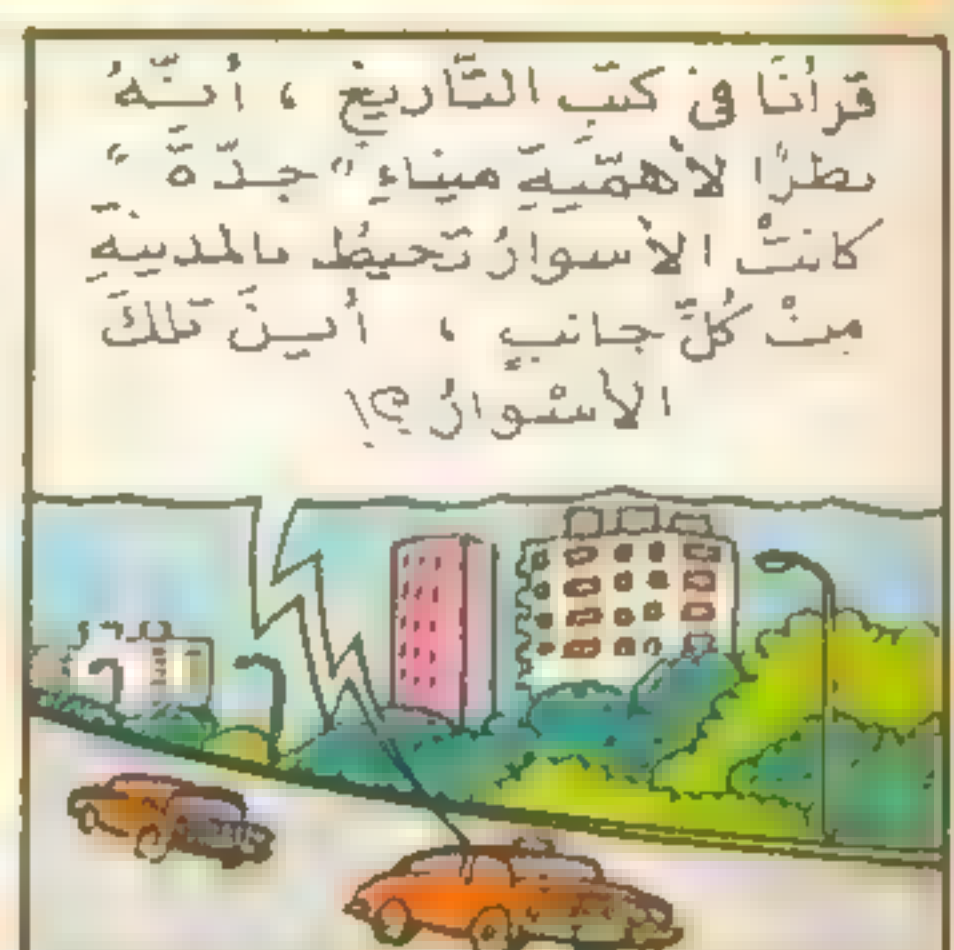 قرأنَا في كتبِ التَّاريخِ ، أنَّهُ
نظرًا لأهمّيةِ ميناءِ "جدّةَ"
كانتْ الأسوارُ تَحيطُ بالمدينةِ
مِنْ كُلِّ جانبٍ ، أينَ تلكَ
الأسْوارُ ؟!